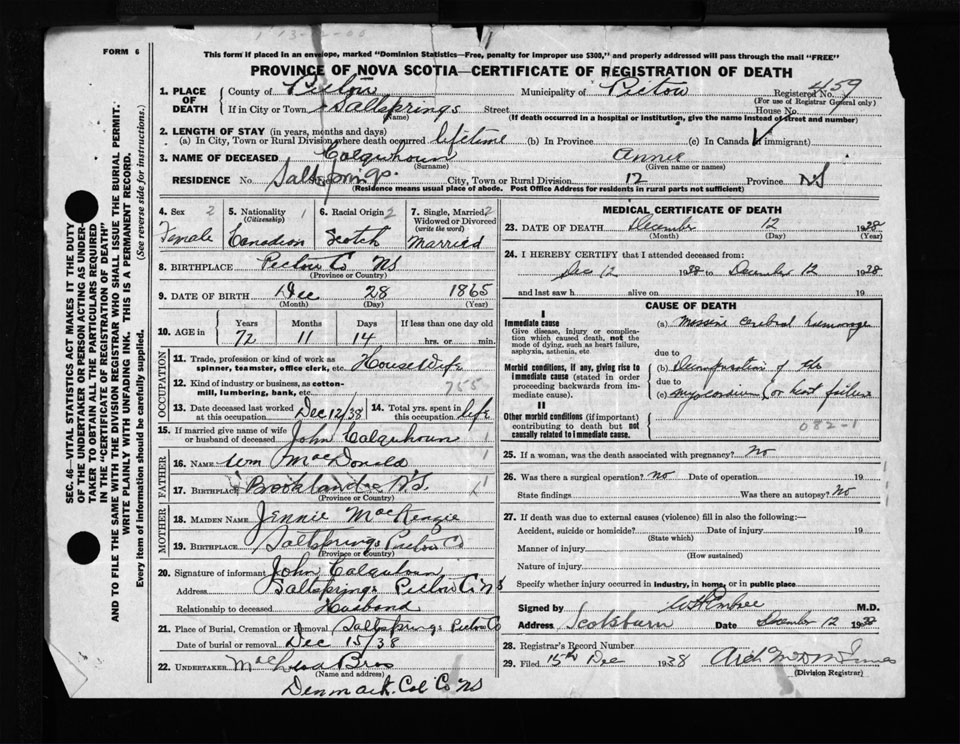 FORM 6
This form if placed in an envelope, marked "Dominion Statistics—Free, penalty for improper use $300," and properly addressed will pass through the mail "FREE"
PROVINCE OF NOVA SCOTIA—CERTIFICATE OF REGISTRATION OF DEATH
SEC. 46—VITAL STATISTICS ACT MAKES IT THE DUTY
OF THE UNDERTAKER OR PERSON ACTING AS UNDER-
TAKER TO OBTAIN ALL THE PARTICULARS REQUIRED
IN THE "CERTIFICATE OF REGISTRATION OF DEATH"
AND TO FILE THE SAME WITH THE DIVISION REGISTRAR WHO SHALL ISSUE THE BURIAL PERMIT.
WRITE PLAINLY WITH UNFADING INK. THIS IS A PERMANENT RECORD.
Every item of information should be carefully supplied. (See reverse side for instructions.)
1. PLACE OF DEATH County of Pictou Municipality of Pictou Registered No. 459
(For use of Registrar General only)
If in City or Town Saltsprings Street House No.
(Name) (If death occurred in a hospital or institution, give the name instead of street and number)
2. LENGTH OF STAY (in years, months and days)
(a) In City, Town or Rural Division where death occurred lifetime (b) In Province (c) In Canada (if immigrant)
3. NAME OF DECEASED Colquhoun Annie
(Surname) (Given name or names)
RESIDENCE No. Saltsprings Street City, Town or Rural Division 12 Province NS
(Residence means usual place of abode. Post Office Address for residents in rural parts not sufficient)
4. Sex 2 Female
5. Nationality 1 (Citizenship) Canadian
6. Racial Origin 2 Scotch
7. Single, Married 2 Widowed or Divorced (write the word) Married
8. BIRTHPLACE Pictou Co NS
(Province or Country)
9. DATE OF BIRTH Dec 28 1865
(Month) (Day) (Year)
10. AGE in Years 72 Months 11 Days 14 If less than one day old hrs. or min.
OCCUPATION
11. Trade, profession or kind of work as spinner, teamster, office clerk, etc. House Wife
12. Kind of industry or business, as cotton-mill, lumbering, bank, etc. 755
13. Date deceased last worked at this occupation Dec 12/38
14. Total yrs. spent in this occupation life
15. If married give name of wife or husband of deceased John Colquhoun 1
FATHER
16. NAME Wm MacDonald 1
17. BIRTHPLACE Brookland N.S. 1
(Province or Country)
MOTHER
18. MAIDEN NAME Jennie MacKenzie
19. BIRTHPLACE Saltsprings Pictou Co
(Province or Country)
20. Signature of informant John Colquhoun
Address Saltsprings Pictou Co NS
Relationship to deceased Husband
21. Place of Burial, Cremation or Removal Saltsprings Pictou Co
Date of burial or removal Dec 15/38
22. UNDERTAKER MacLeod Bros
(Name and address)
Denmark Col Co NS
MEDICAL CERTIFICATE OF DEATH
23. DATE OF DEATH December 12 1938
(Month) (Day) (Year)
24. I HEREBY CERTIFY that I attended deceased from:
Dec 12 1938 to December 12 1938
and last saw h alive on 19
CAUSE OF DEATH
I
Immediate cause
Give disease, injury or complication which caused death, not the mode of dying, such as heart failure, asphyxia, asthenia, etc
(a) massive cerebral hemorrhage
due to
Morbid conditions, if any, giving rise to immediate cause (stated in order proceeding backwards from immediate cause).
(b) Decompensation of the
due to
(c) myocardium (or heart failure
II
Other morbid conditions (if important) contributing to death but not causally related to immediate cause.
082-1
25. If a woman, was the death associated with pregnancy? No
26. Was there a surgical operation? No Date of operation 19
State findings Was there an autopsy? No
27. If death was due to external causes (violence) fill in also the following:—
Accident, suicide or homicide? Date of injury 19
(State which)
Manner of injury
(How sustained)
Nature of injury
Specify whether injury occurred in industry, in home, or in public place
Signed by M.D.
Address Scotsburn Date December 12 1938
28. Registrar's Record Number
29. Filed 15th Dec 1938
(Division Registrar)